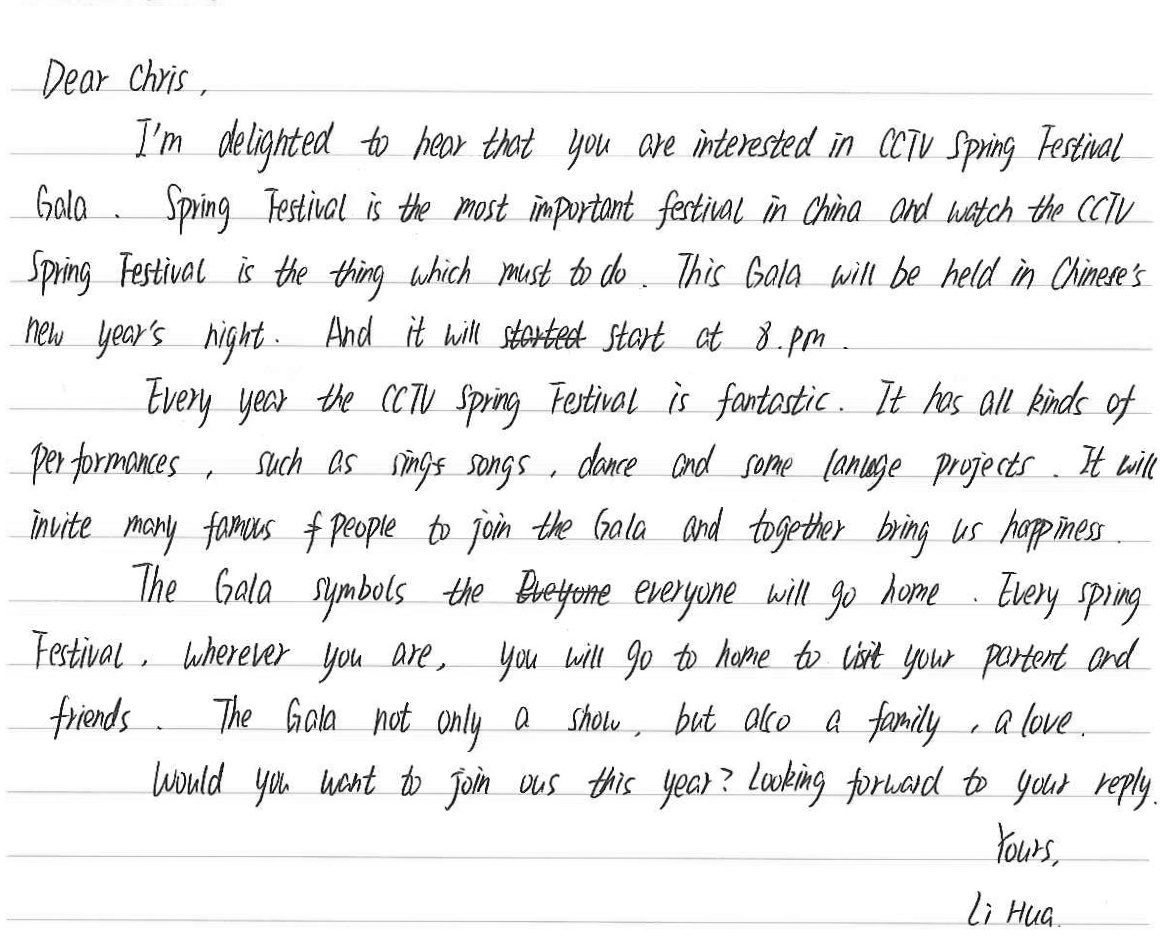 Dear Chris,
I'm delighted to hear that you are interested in CCTV Spring Festival
Gala. Spring Festival is the most important festival in China and watch the CCTV
Spring Festival is the thing which must to do. This Gala will be held in Chinese's
new year's night. And it will started start at 8.pm.
Every year the CCTV Spring Festival is fantastic. It has all kinds of
performances, such as sings songs, dance and some lanuage projects. It will
invite many famous f people to join the Gala and together bring us happiness.
The Gala symbols the Eveyone everyone will go home. Every spring
Festival, wherever you are, you will go to home to visit your partent and
friends. The Gala not only a show, but also a family, a love.
Would you want to join ous this year? Looking forward to your reply.
Yours,
Li Hua.